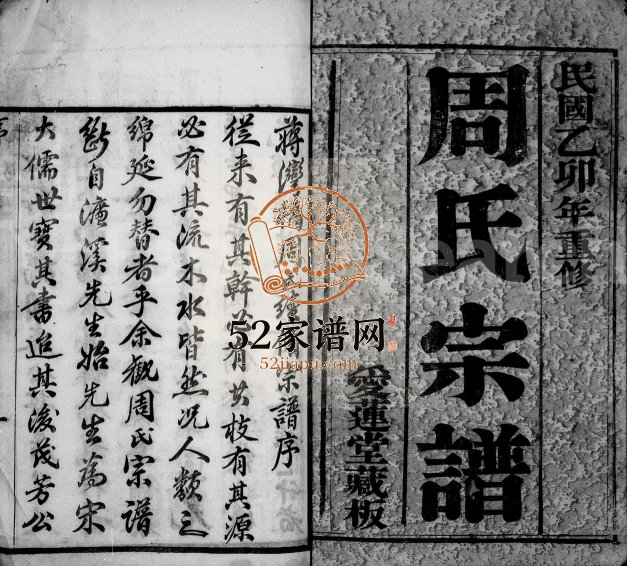 民國乙卯年重修
周氏宗譜
愛蓮堂藏板
蔣灣 周 宗譜序
從来有其幹 有其枝有其源
必有其流木水皆然况人類之
綿延勿替者乎余觀周氏宗譜
斷自濂溪先生始先生為宋
大儒世寶其書迨其後茂芳公
52家谱网
52jiapu.com